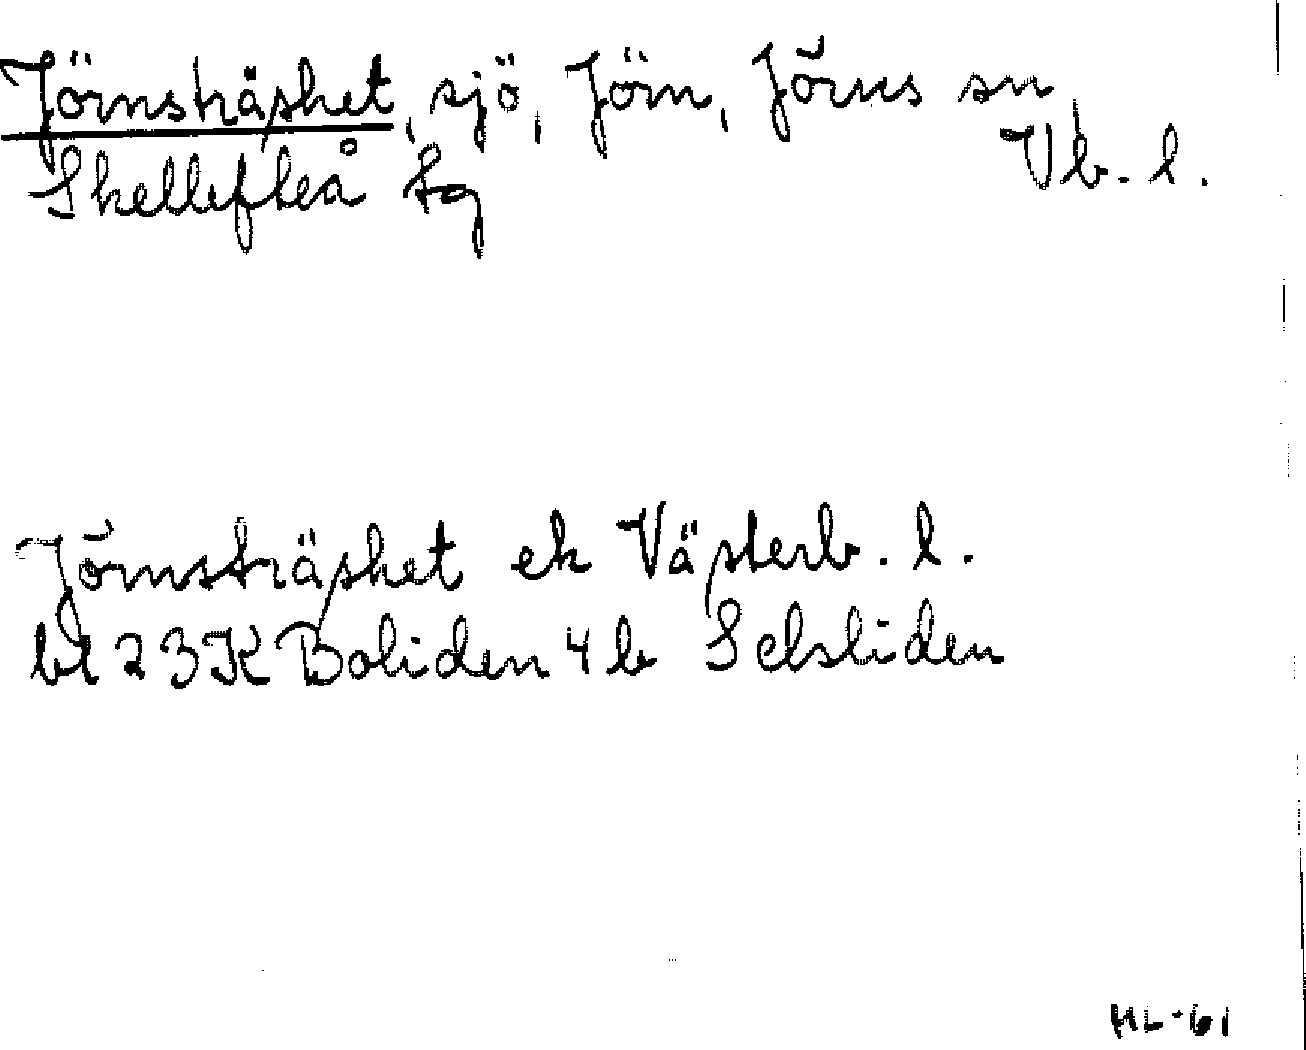 Jörnsträsket, sjö, Jörn, Jörns sn,
Skellefteå tg Vb. l.
Jörnsträsket ek Västerb. l.
bl 23K Boliden 4b Selsliden
HL-61